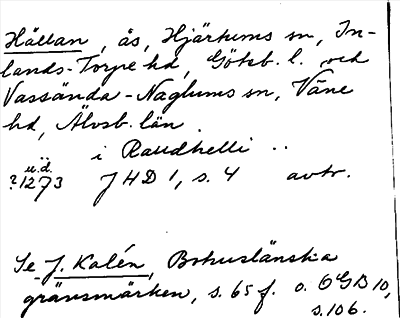 Hällan, ås, Hjärtums sn, In-
lands-Torpe hd, Göteb. l. och
Vassända-Naglums sn, Väne
hd, Älvsb. län.
i Raudhelli ..
u.d.
?1273 JHD 1, s. 4 avtr.
Se J. Kalén, Bohuslänska
gränsmärken, s. 65 f. o. OGB 10,
s. 106.